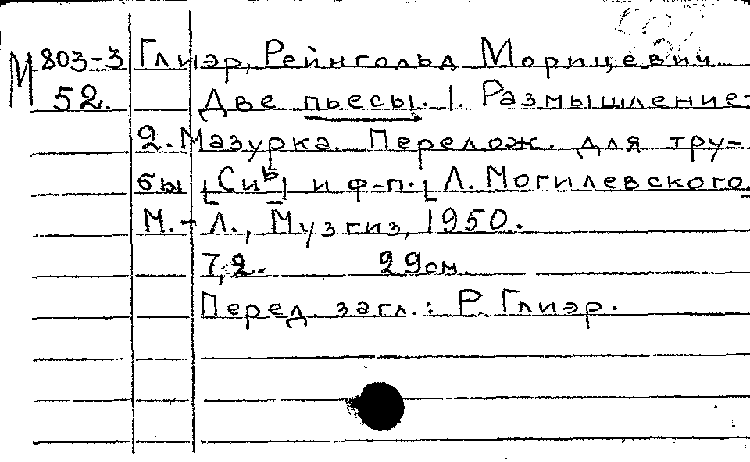 М 803-3 Глиэр, Рейнгольд Морицевич
52. Две пьесы. 1. Размышление-
2. Мазурка. Перелож. для тру-
бы [Си♭] и ф-п. [Л. Могилевского
М. - Л., Музгиз, 1950.
7,2. 29 см.
Перед загл.: Р. Глиэр.